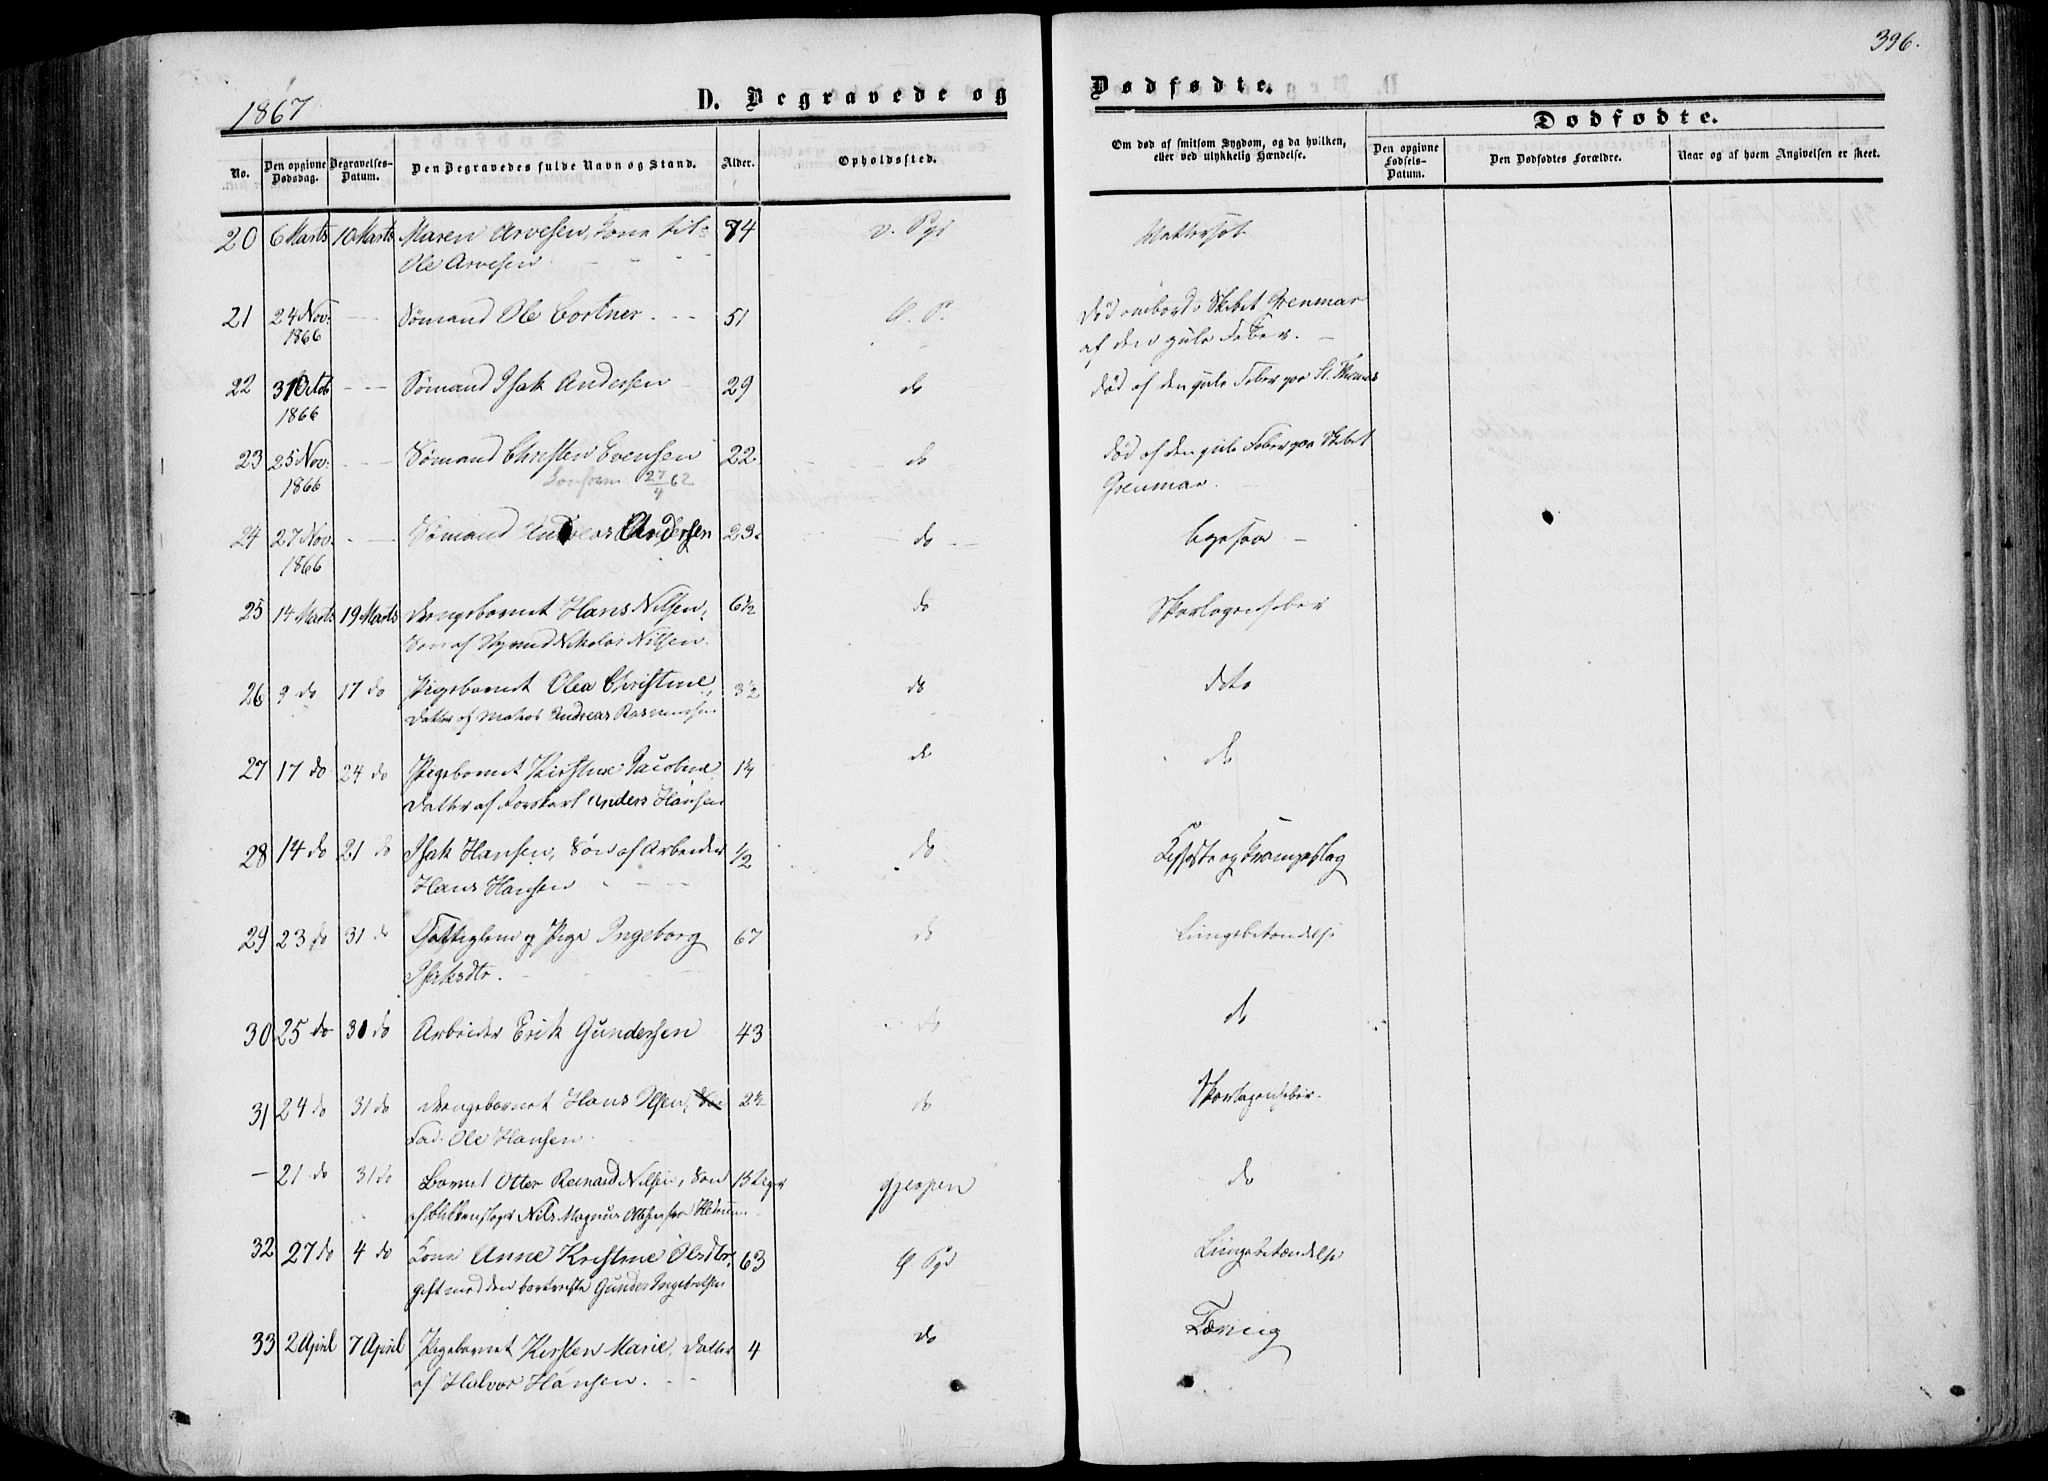 396.
1867
D. Begravede og
Dødfødte.
No.
Den opgivne Dødsdag.
Begravelses-Datum.
Den Begravedes fulde Navn og Stand.
Alder.
Opholdssted.
Om død af smitsom Sygdom, og da hvilken, eller ved ulykkelig Hændelse.
Dødfødte.
Den opgivne Fødsels-Datum.
Den Dødfødtes Forældre.
Naar og af hvem Angivelsen er skeet.
20 6 Marts 10 Marts Maren Arvesen, Kone til 74
Ole Arvesen
21 24 Nov. 1866 Sømand Ole Cortner 51 Død ombord i Skibet Grenmar
af den gule Feber.
22 31 Octob 1866 Sømand Isak Andersen 29 do død af den gule Feber paa St. Thomas
23 25 Nov. 1866 Sømand Christen Evensen 22 do død af den gule Feber paa Skibet
27/4 62 Grenmar.
24 27 Nov. 1866 Sømand Andreas Andersen 23 do
25 14 Marts 19 Marts Drengebarnet Hans Nilsen, 6½ do Skarlagensfeber
Søn af Nikolai Nilsen.
26 9 do 17 do Pigebarnet Olea Christine, 3½ do dito
Datter af Matros Andreas Rasmussen
27 17 do 24 do Pigebarnet Kirstine Jacobine 1¼ do do
Datter af Anders Hansen
28 14 do 21 do Isak Hansen, Søn af Arbeider ½ do og Krampeslag
Hans Hansen
29 23 do 31 do Fattiglem og Pige Ingeborg 67 do Lungebetændelse
Isaksdtr.
30 25 do 31 do Arbeider Erik Gundersen 43 do do
31 24 do 31 do Drengebarnet Hans Olsen, 2½ do Skarlagensfeber.
Fad. Ole Hansen
— 21 do 31 do Barnet Otter Reinard Nilsen, Søn 15 Gjerpen do
af Nils Magnus
32 27 do 4 do Kone Anne Kristine Olsdtr, 63 Lungebetændelse
gift med den bortreiste Gunder Ingebretsen
33 2 April 7 April Pigebarnet Kirsten Marie, Datter 4 do Tæring
af Halvor Hansen.